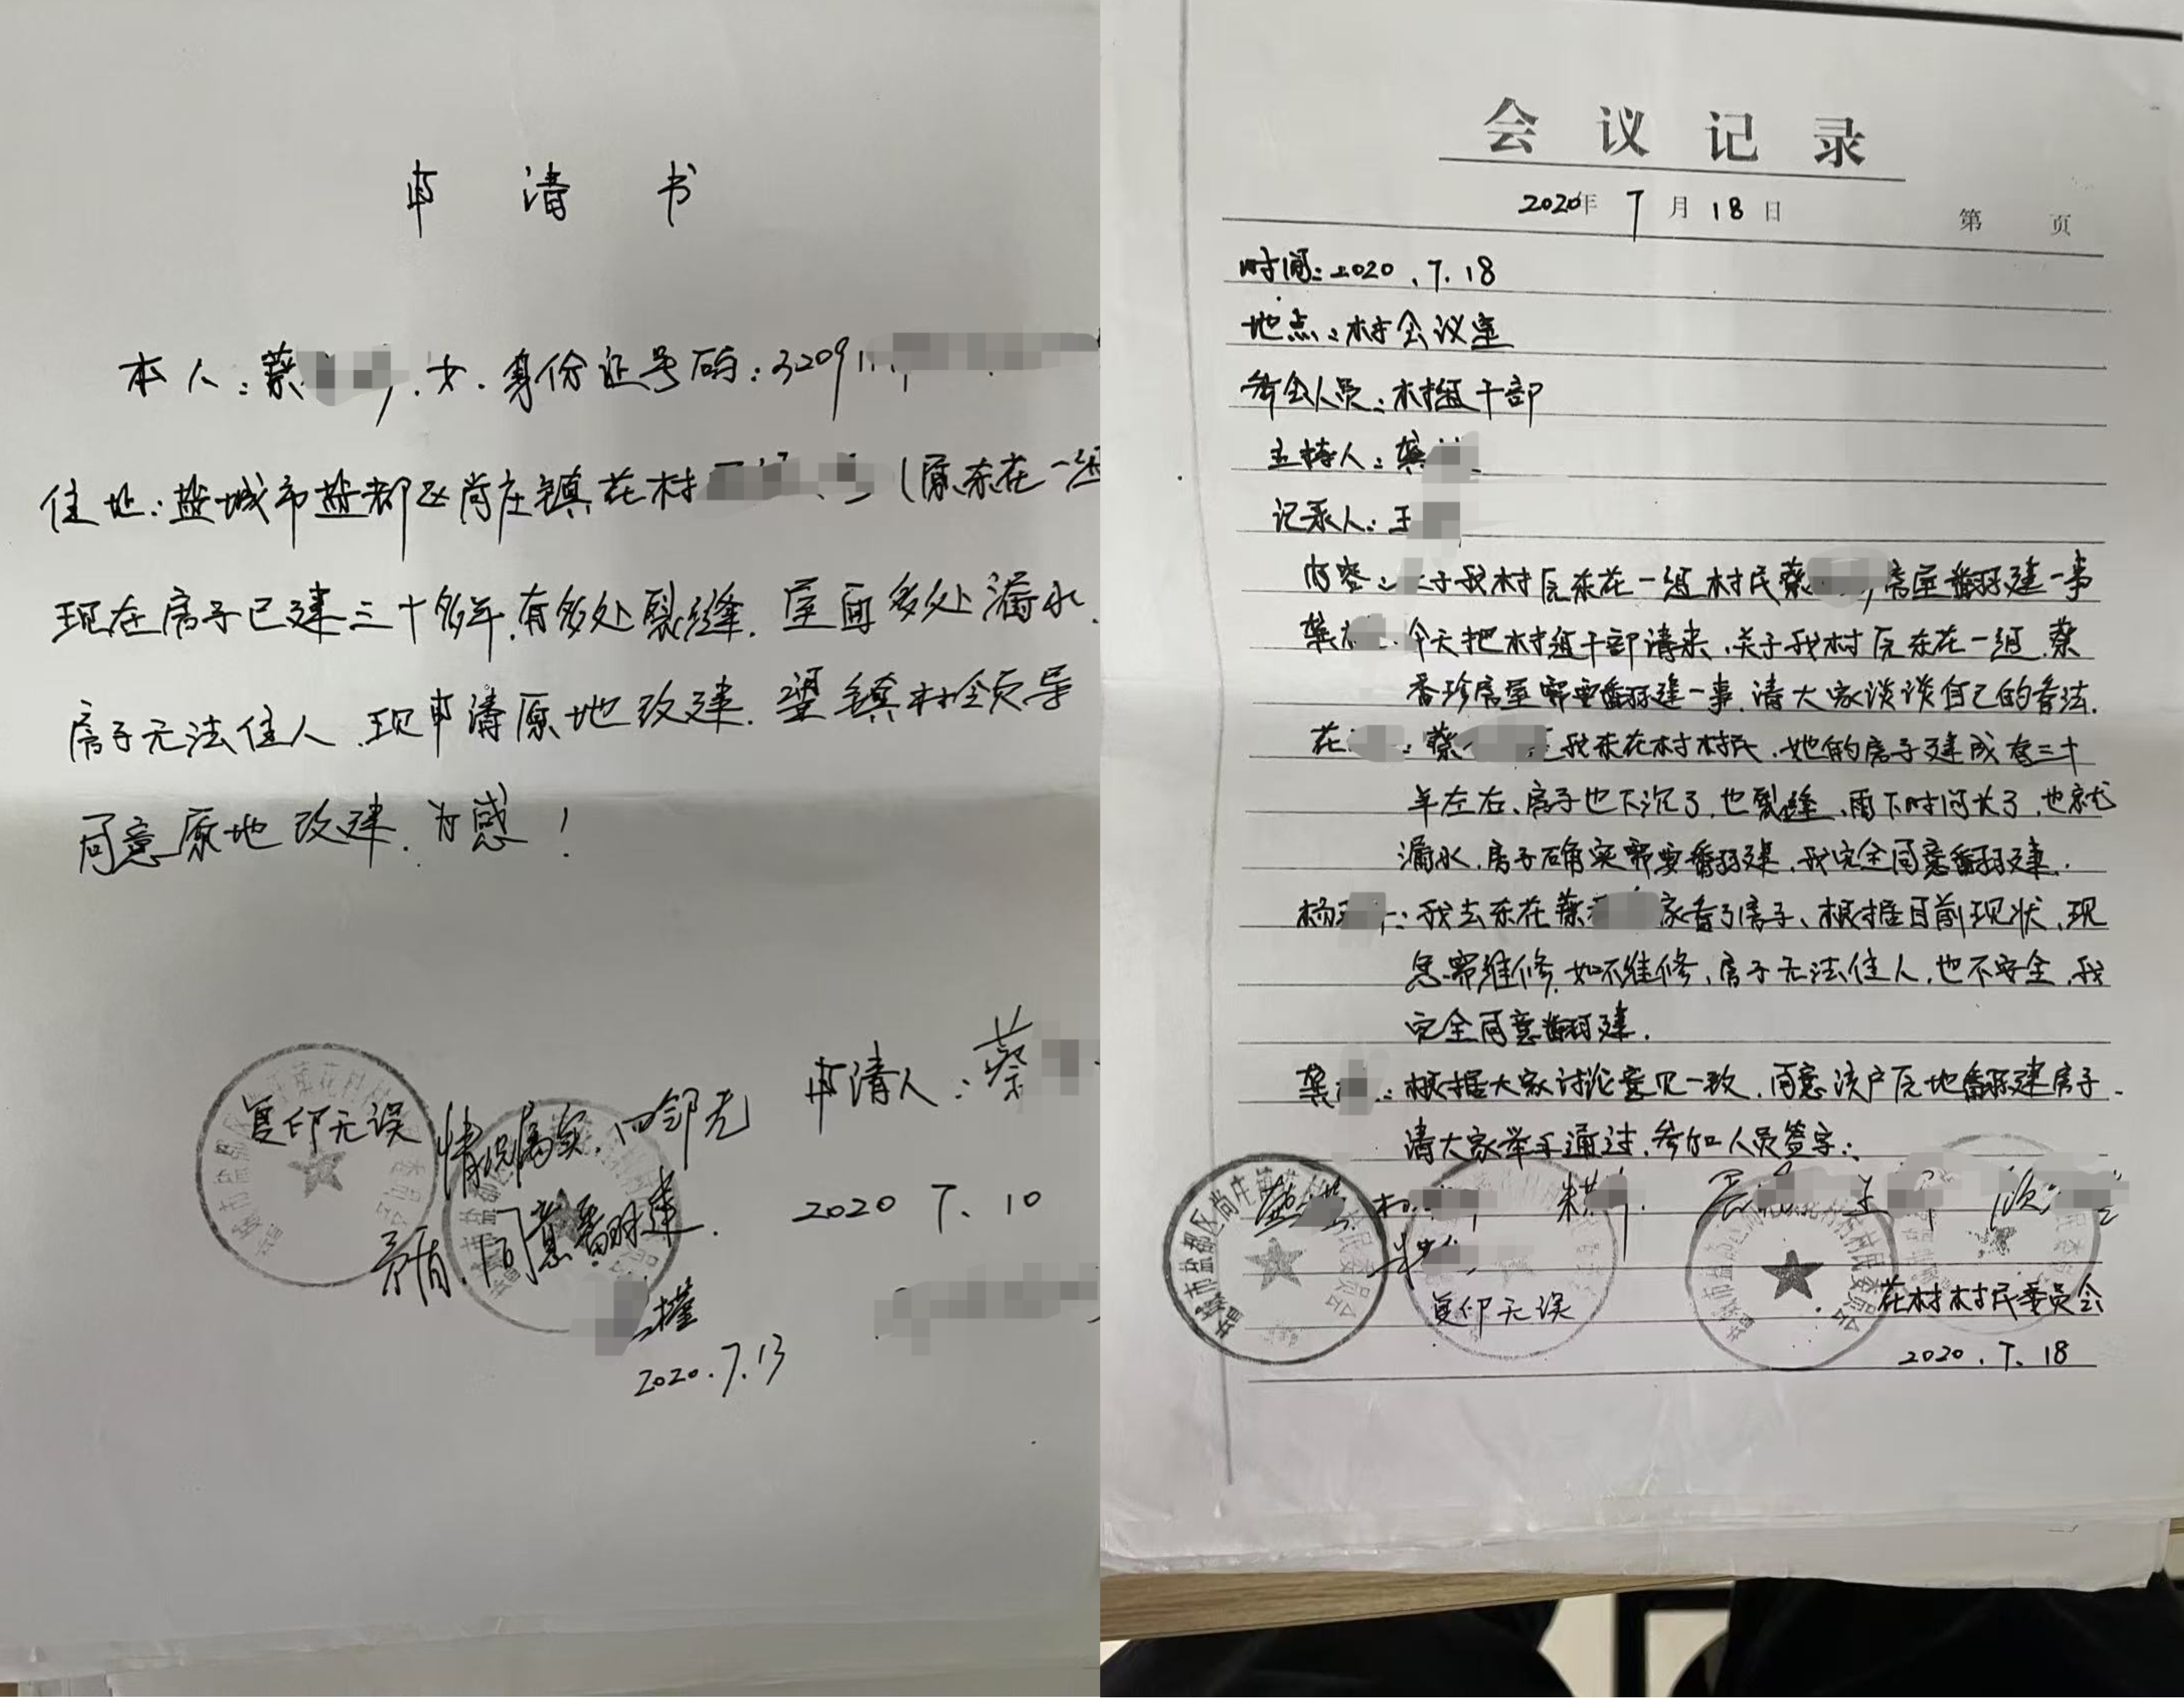 申请书
本人:蔡 女.身份证号码:3209
住址:盐城市盐都区尚庄镇花村 (原东花一组
现在房子已建三十多年.有多处裂缝.屋面多处漏水.
房子无法住人.现申请原地改建.望镇村领导
同意原地改建.为感!
申请人:蔡
2020 7.10
复印无误
情况属实.四邻无
矛盾.同意翻建.
2020.7.13
会议记录
2020年 7月18日 第 页
时间:2020.7.18
地点:村会议室
参会人员:村组干部
主持人:龚
记录人:王
内容: 于我村原东花一组村民蔡 房屋翻建一事
龚 今天把村组干部请来.关于我村原东花一组.蔡
香珍房屋需要翻建一事.请大家谈谈自己的看法.
花 :蔡 我东花村村民.她的房子建成有三十
年左右、房子也下沉了.也裂缝.雨下时间长了.也就
漏水.房子确实需要翻建.我完全同意翻建.
杨 :我去东花蔡 家看了房子、根据目前现状.现
急需维修.如不维修.房子无法住人.也不安全.我
完全同意翻建.
龚 :根据大家讨论意见一致.同意该户原地翻建房子.
请大家举手通过.参加人员签字:
复印无误
花村村民委员会
2020.7.18
盐城市盐都区尚庄镇花村村民委员会